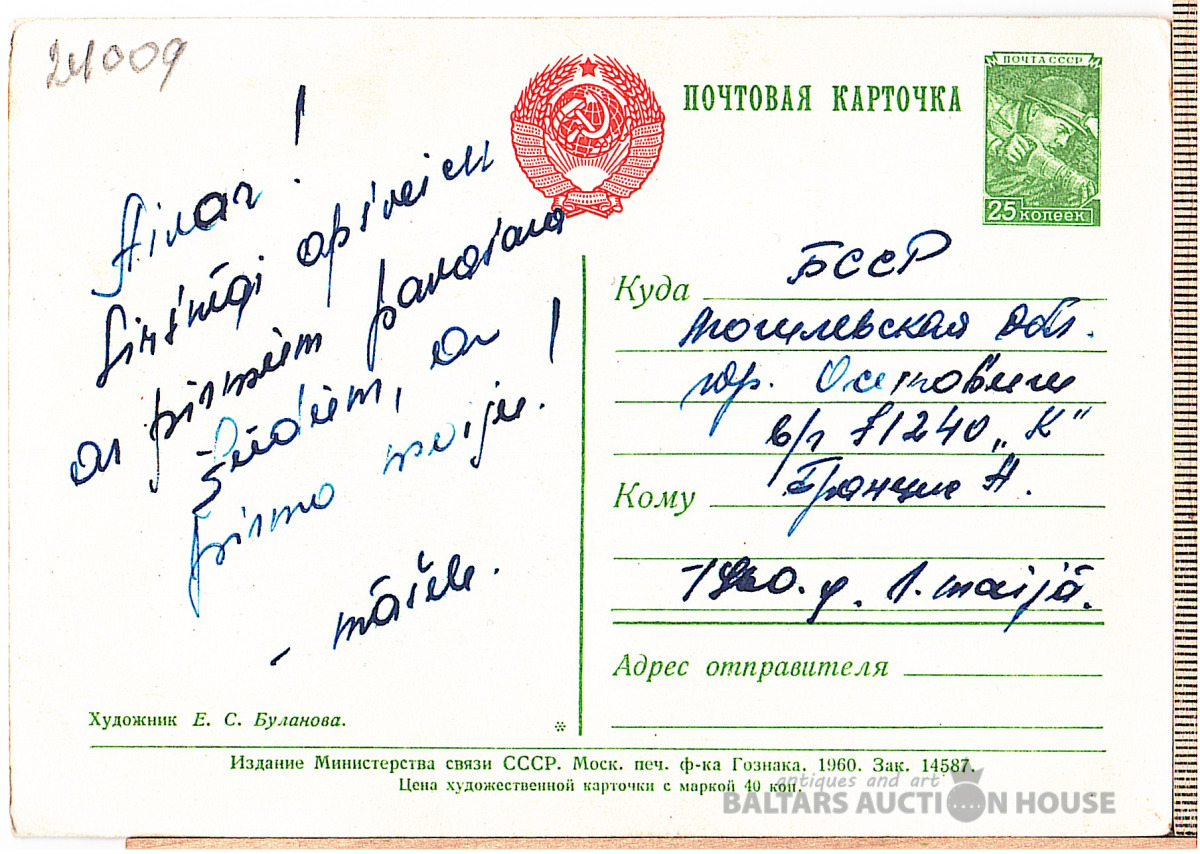 24009
Aivar!
Sirsnīgi apsveicu
ar pirmiem pavasara
ziediem, ar
pirmo maiju!
- māsiņa.
ПОЧТОВАЯ КАРТОЧКА
ПОЧТА СССР
25 копеек
Куда БССР
Могилевская обл.
гор. Осиповичи
в/ч 71240 „К"
Кому Гранцис А.
1960. g. 1. maijā.
Адрес отправителя
Художник Е. С. Буланова.
*
Издание Министерства связи СССР. Моск. печ. ф-ка Гознака. 1960. Зак. 14587.
Цена художественной карточки с маркой 40 коп.
antiques and art
BALTARS AUCTION HOUSE